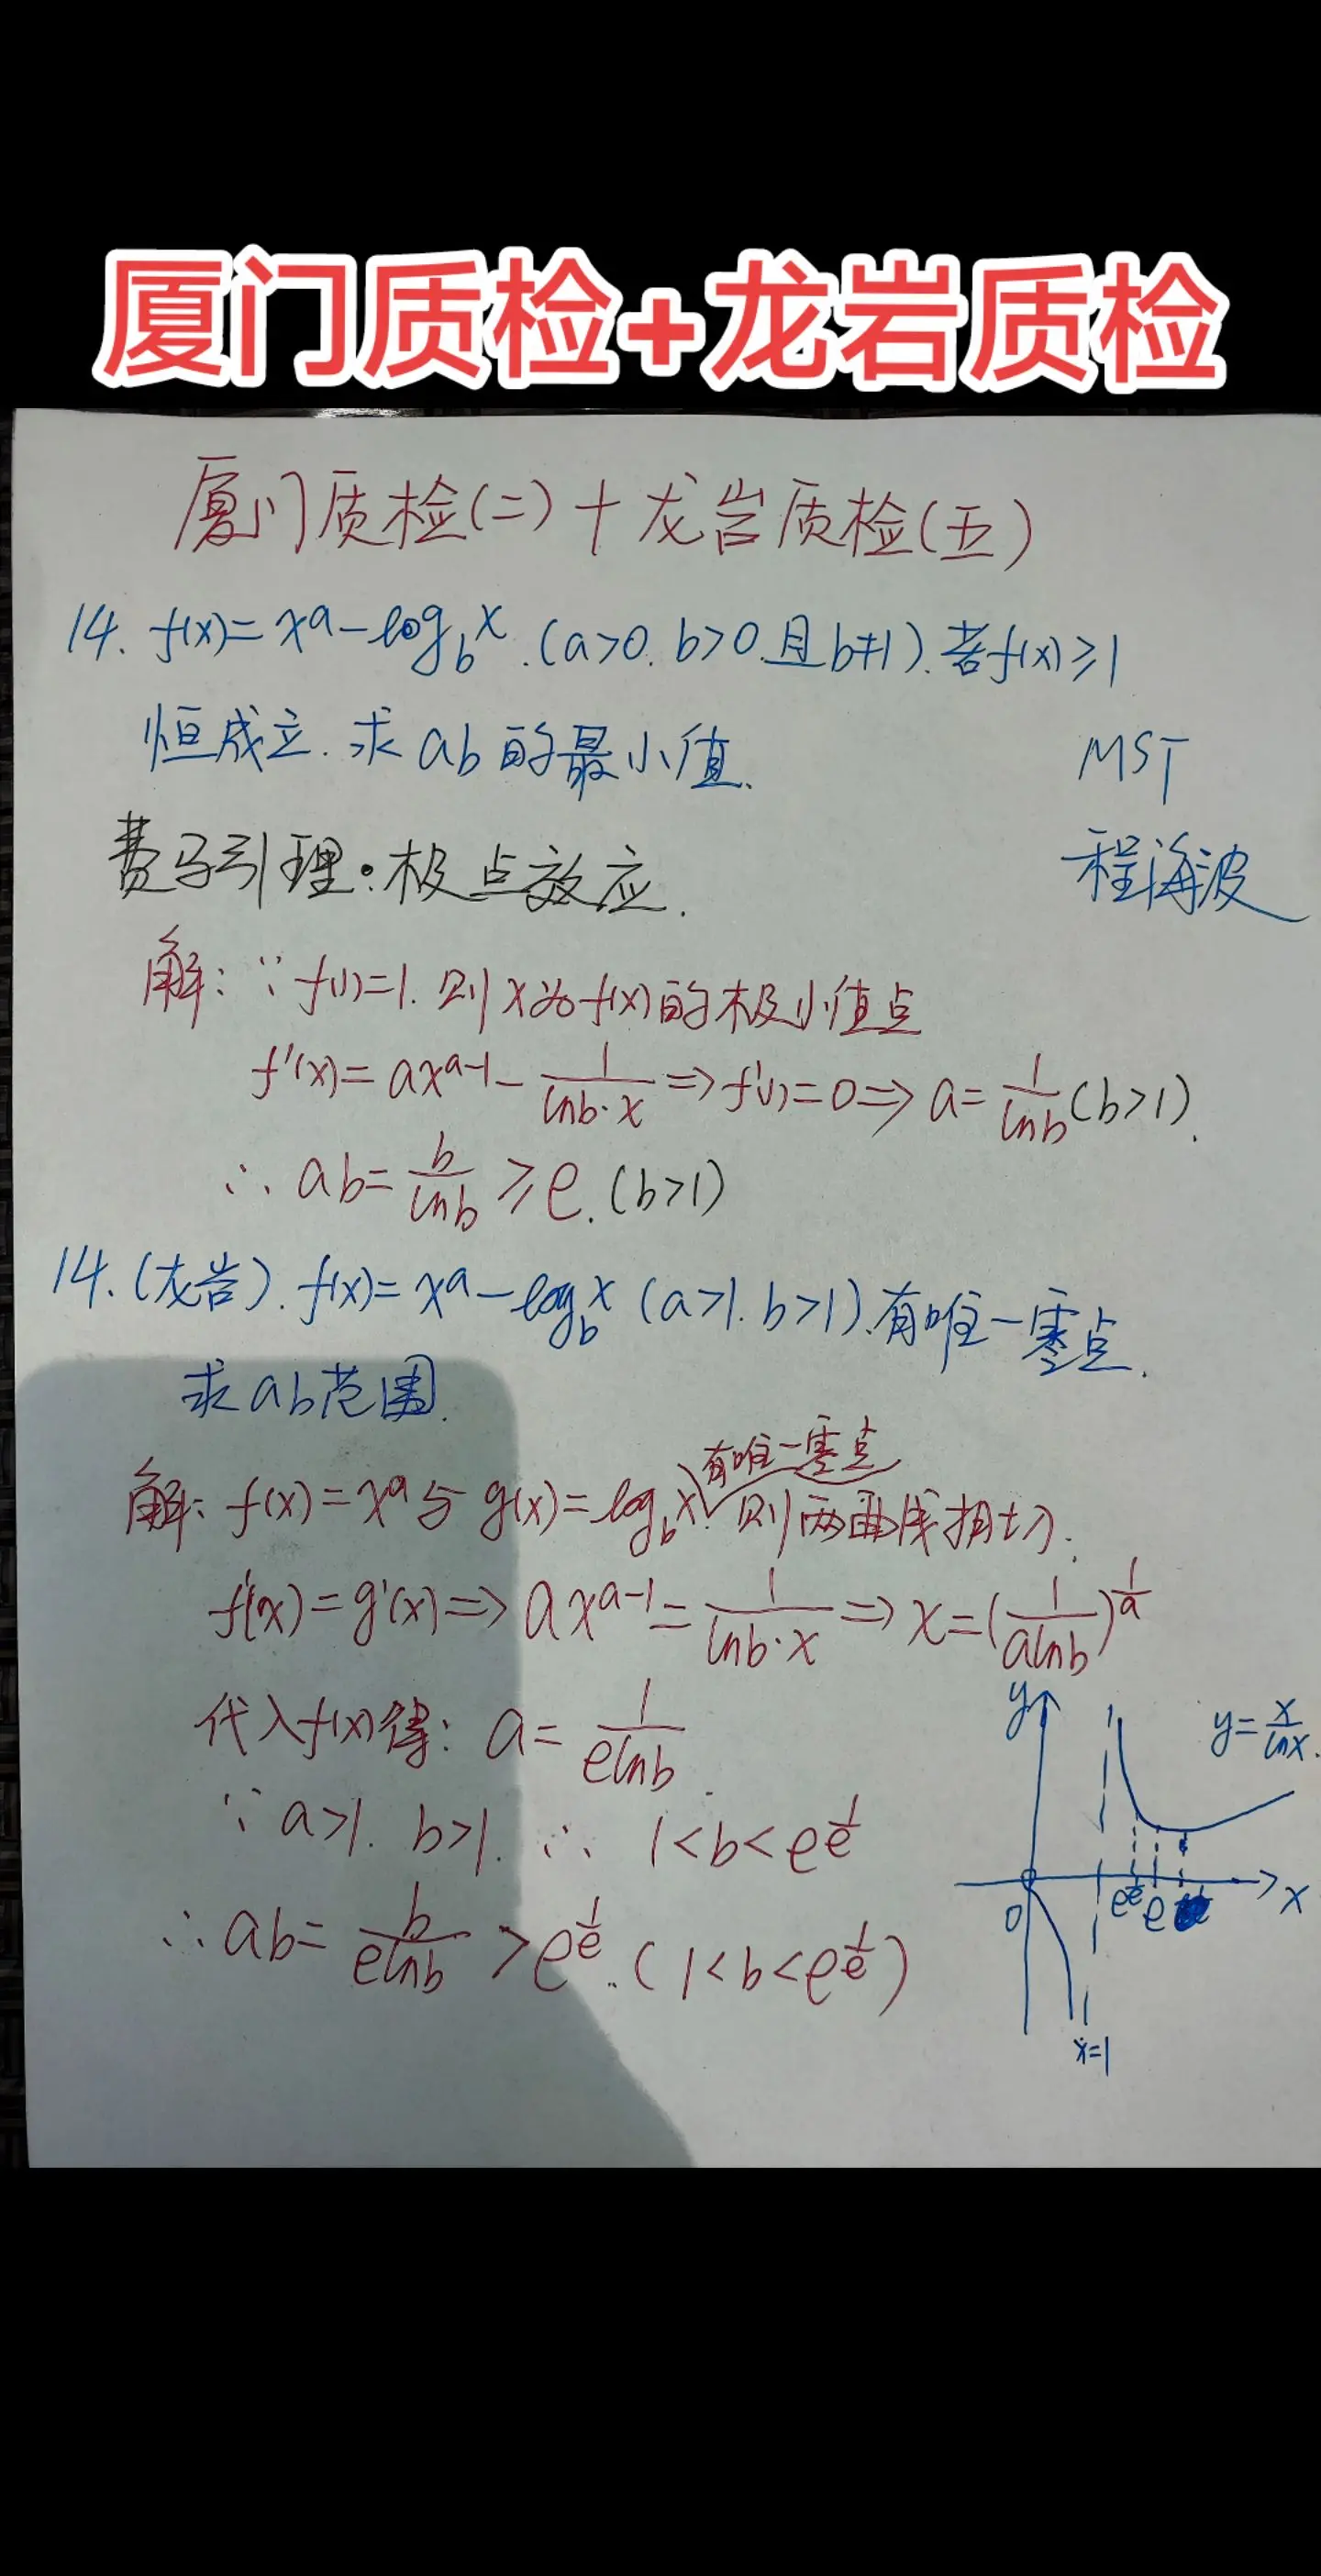 厦门质检+龙岩质检
厦门质检(二)+龙岩质检(五)
14. f(x)=xᵃ-log_b x.(a>0.b>0.且b≠1).若f(x)≥1
恒成立.求ab的最小值.
MST
费马引理·极点效应.
程海波
解:∵f(1)=1.则x为f(x)的极小值点
f'(x)=axᵃ⁻¹-1/(lnb·x)⇒f'(1)=0⇒a=1/lnb(b>1).
∴ab=b/lnb≥e.(b>1)
14.(龙岩).f(x)=xᵃ-log_b x(a>1.b>1).有唯一零点.
求ab范围.
有唯一零点
解:f(x)=xᵃ与g(x)=log_b x.则两曲线相切.
f'(x)=g'(x)⇒axᵃ⁻¹=1/(lnb·x)⇒x=(1/(alnb))^(1/a)
代入f(x)得:a=1/(elnb).
∵a>1.b>1.∴1<b<e^(1/e)
∴ab=b/(elnb)>e^(1/e).(1<b<e^(1/e))
y
y=x/lnx.
0
e^(1/e)
e
x
x=1